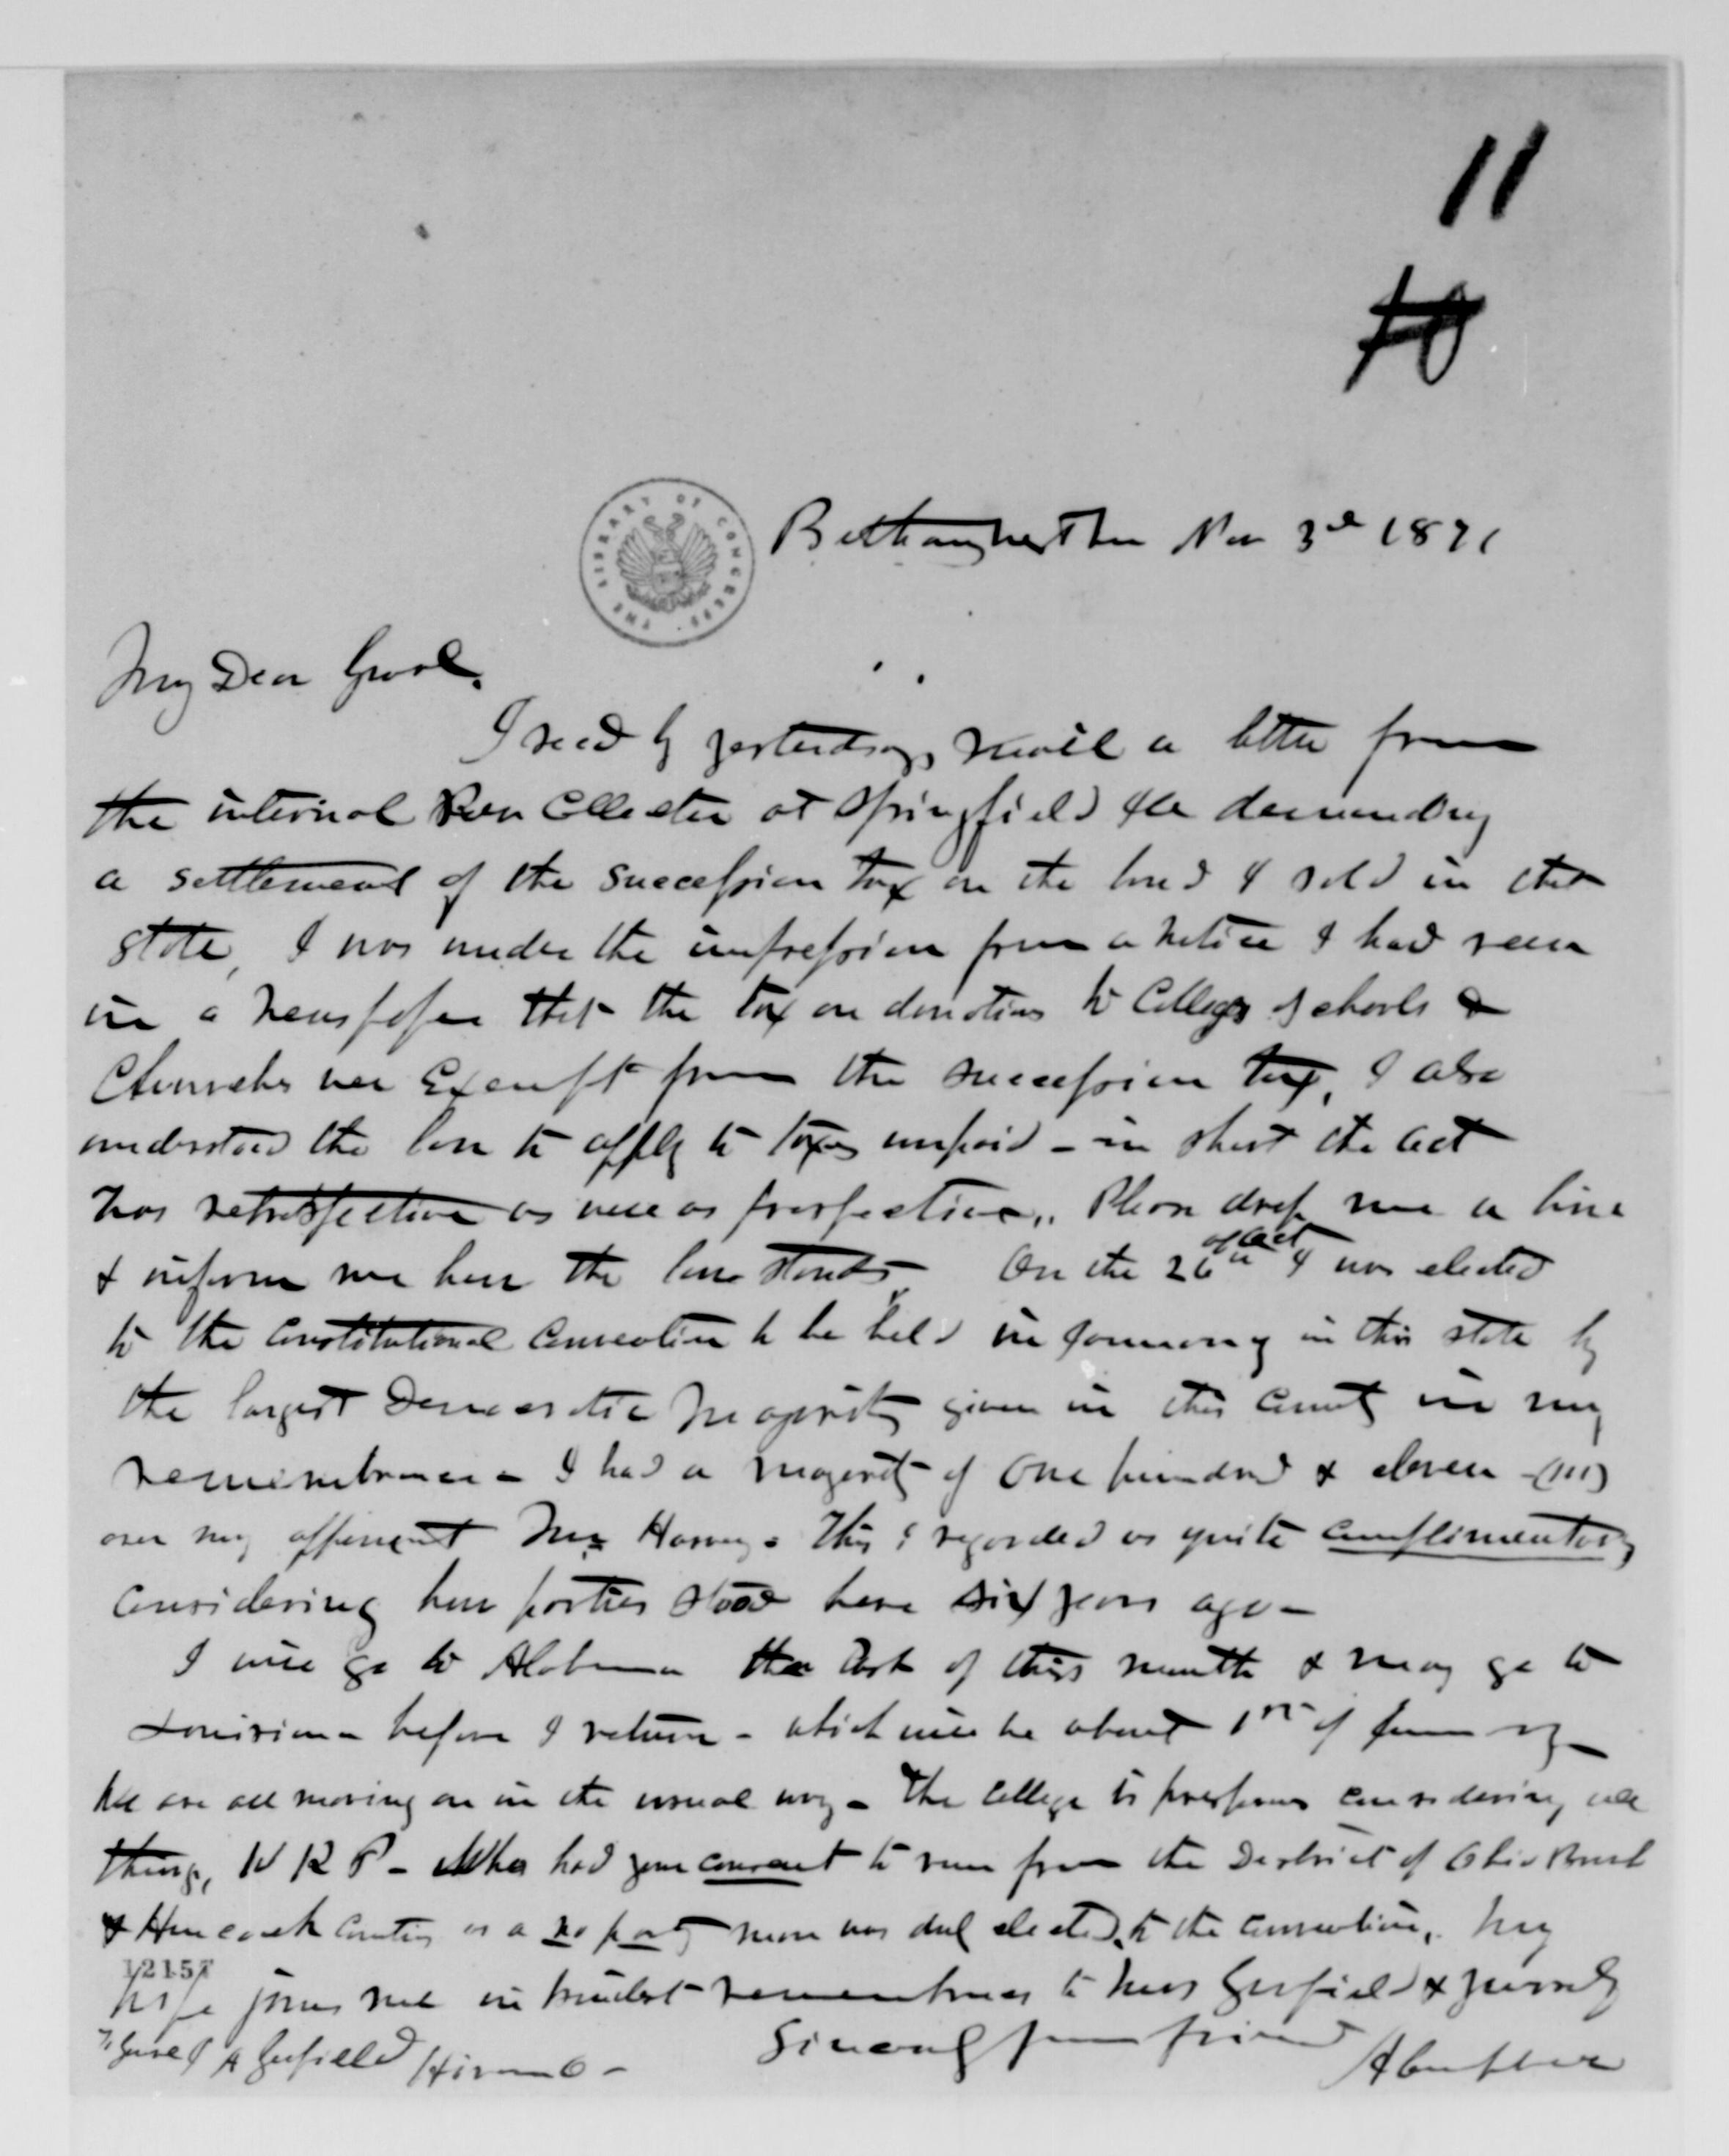 11
10
THE LIBRARY OF CONGRESS
Bethany West Va Nov 3rd 1871
My Dear Genl.
I recd by yesterdays mail a letter from
the internal Rev Collector at Springfield Ills demanding
a settlement of the succession tax on the land I sold in that
state, I was under the impression from a notice I had seen
in a Newspaper that the tax on donations to Colleges Schools &
Churches was Exempt from the succession tax, I also
understood the law to apply to taxes unpaid - in short the act
was retrospective as well as prospective. Please drop me a line
& inform me how the law stands On the 26th of Oct I was elected
to the Constitutional Convention to be held in January in this state by
the largest Democratic Majority given in this County in my
remembrance - I had a majority of One hundred & eleven - (111)
over my opponent Mr Harvey - This I regarded as quite complimentary
Considering how parties stood here six years ago -
I will go to Alabama the last of this month & may go to
Louisiana before I return - which will be about 1st of January
We are all moving on in the usual way - The College is prosperous considering all
things, W K P - who had your consent to run from the District of Ohio Brook
& Hancock Counties as a no party man was duly elected to the convention. My
12157
Wife joins me in kindest remembrances to Mrs Garfield & family
Sincerely your friend
A Campbell
Genel J A Garfield Hiram O -